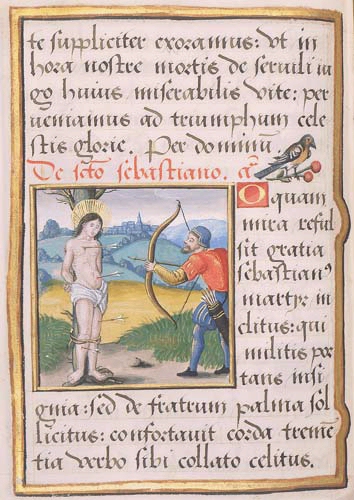 te suppliciter exoramus: vt in
hora nostre mortis de seruili iu
go huius miserabilis vite: per
ueniamus ad triumphum cele
stis glorie. Per dominū.
De scto sebastiano. añ
O quam
mira reful
sit gratia
sebastianꝰ
martyr in
clitus: qui
militis por
tans insi
gnia: sed de fratrum palma sol
licitus: confortauit corda tremē
tia verbo sibi collato celitus.